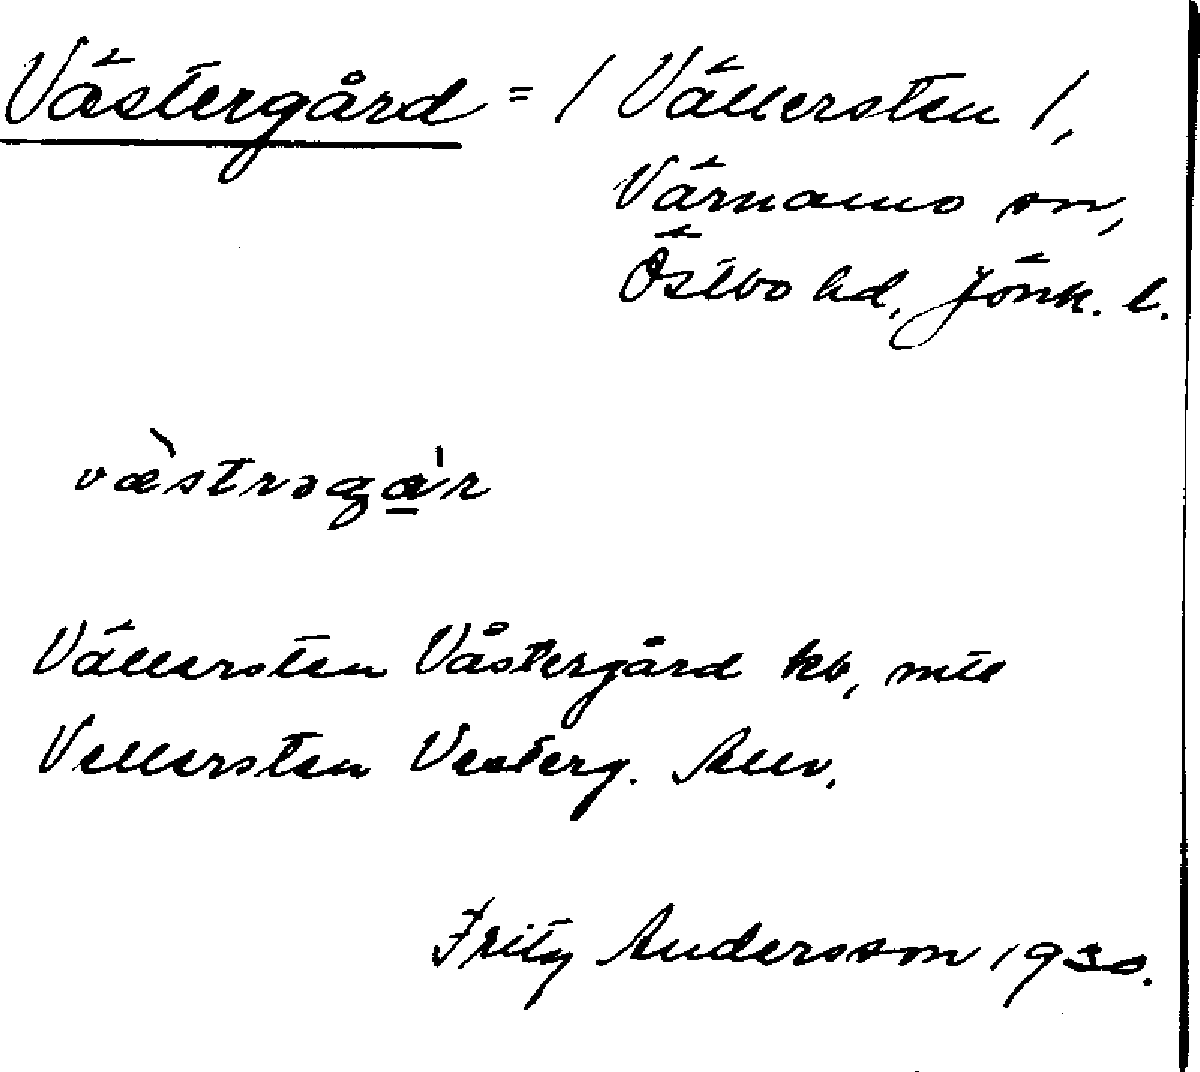 Västergård = / Vällersten /,
Värnamo sn,
Östbo hd, Jönk. l.
væ̀strəga̱'r
Vällersten Västergård kb,
Vellersten Vesterg.
Fritz Andersson 1930.